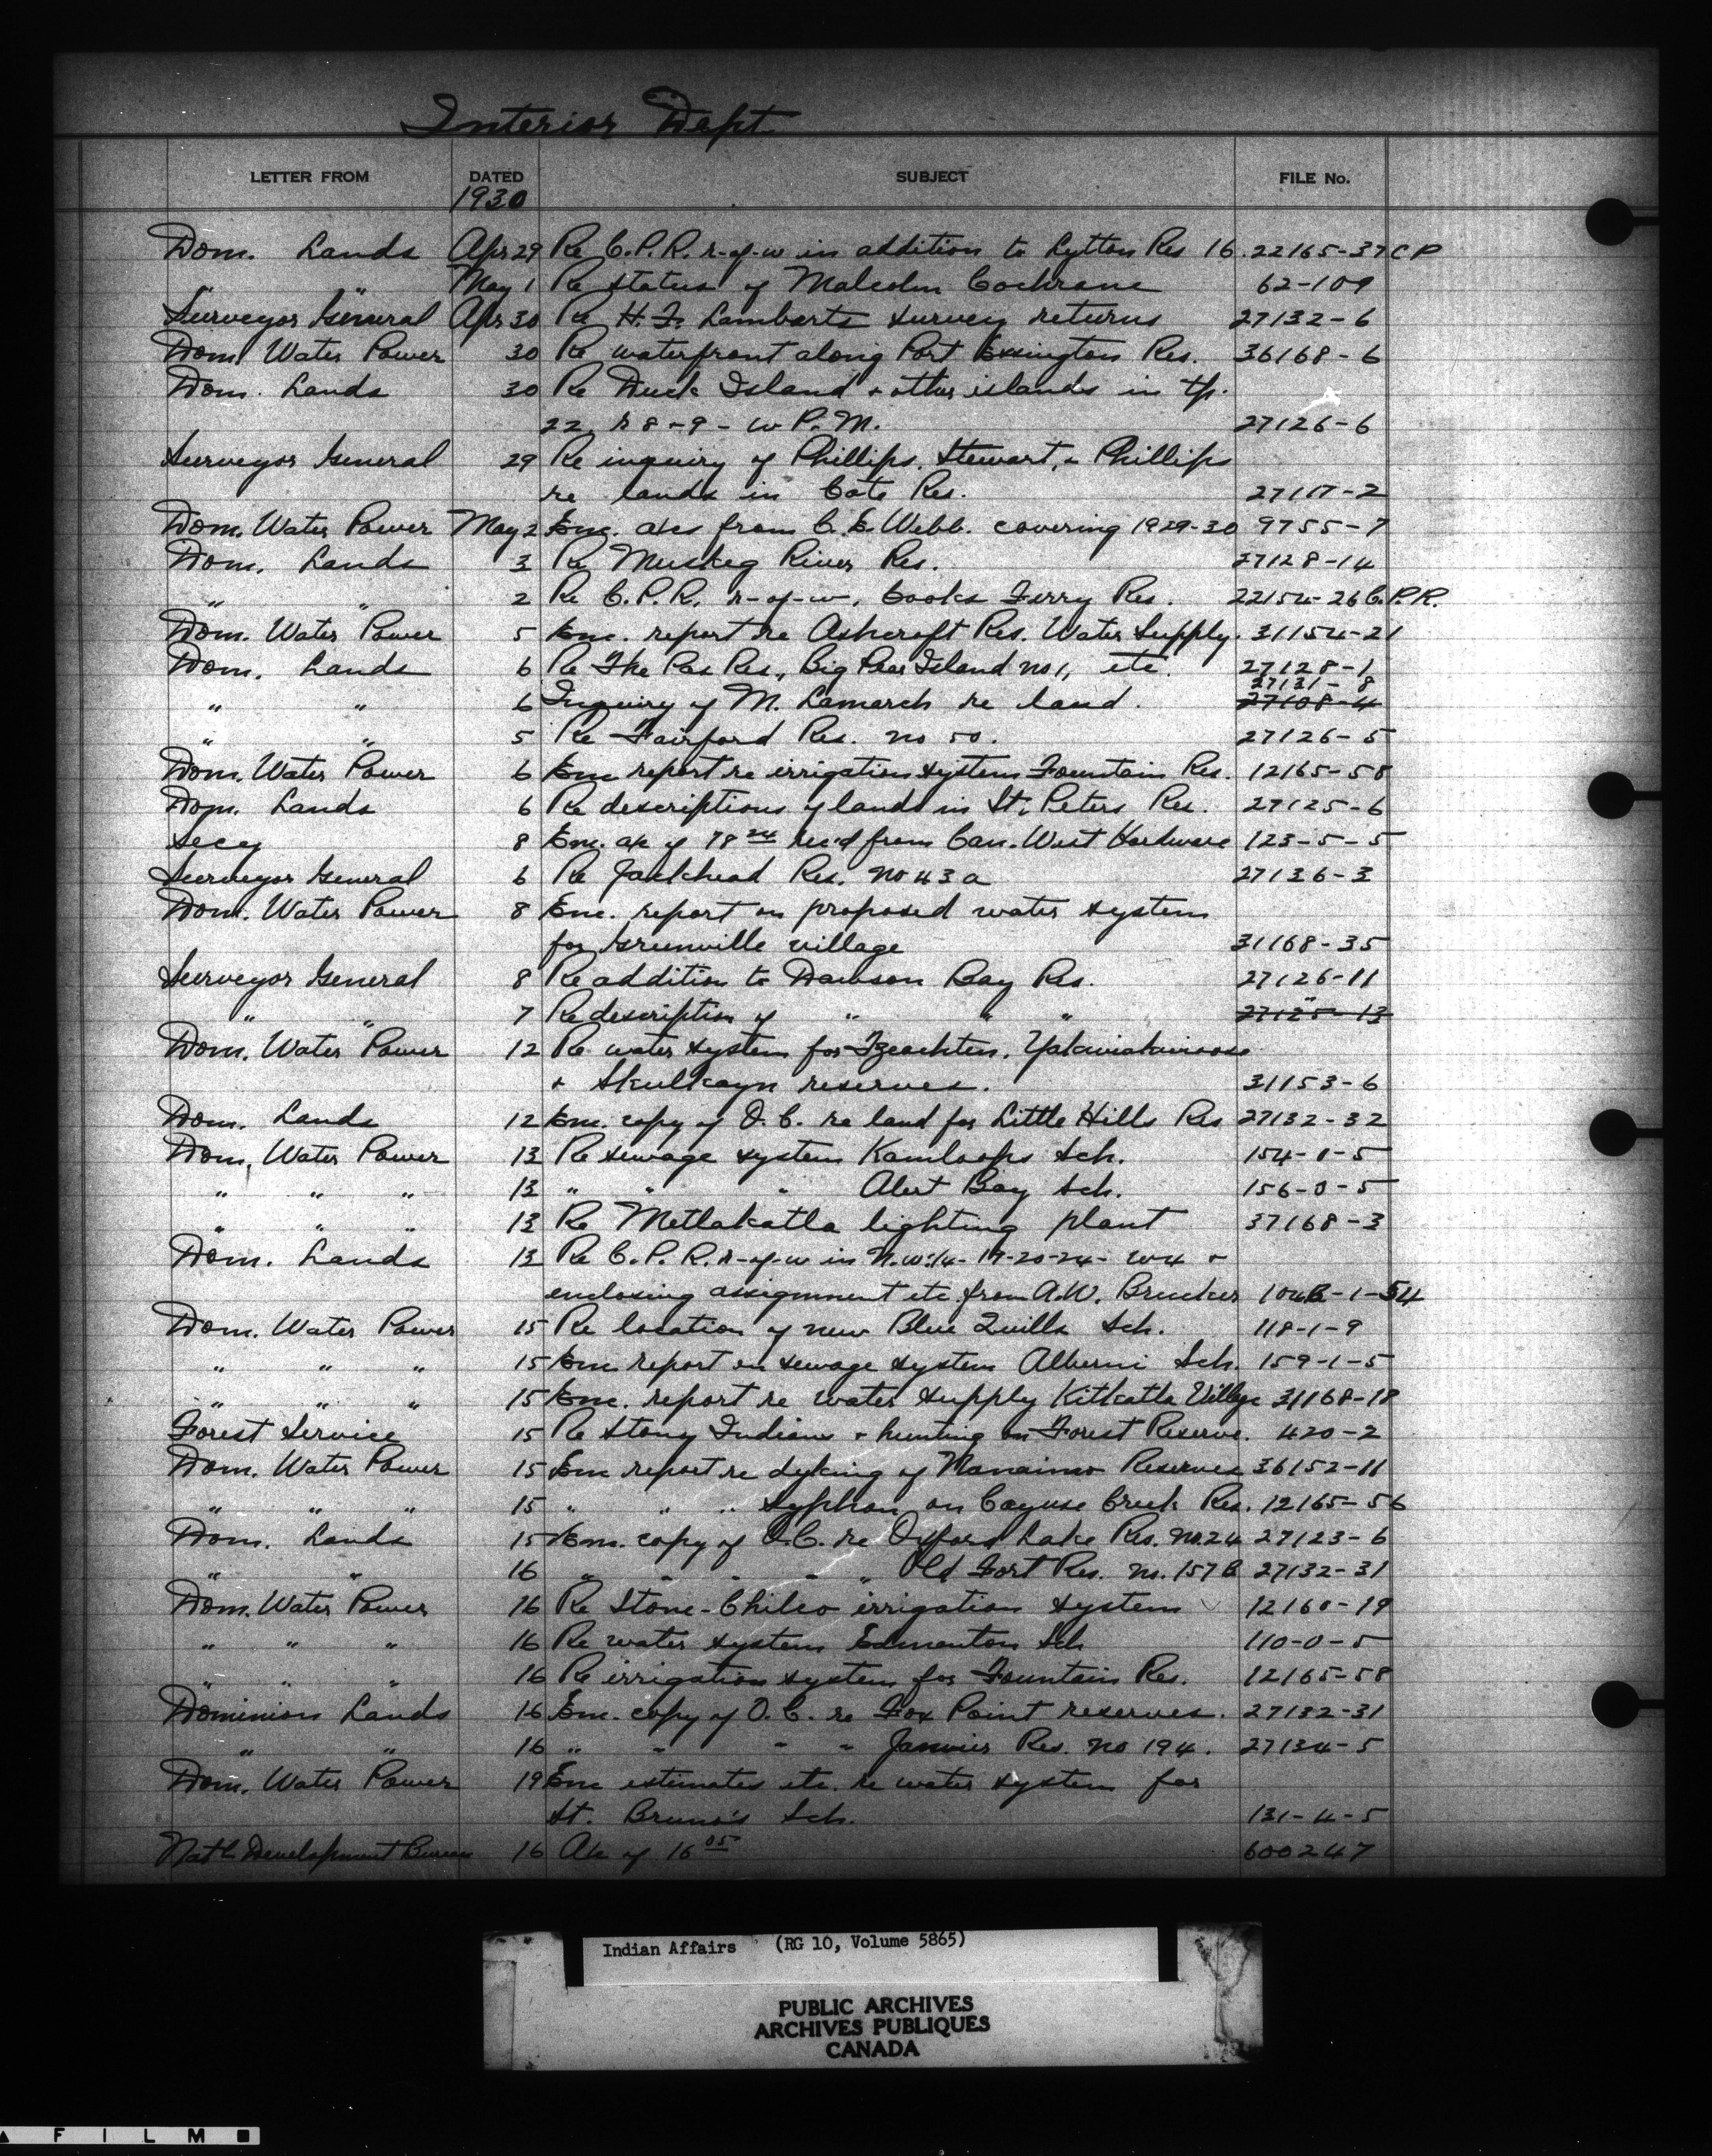 Interior Dept
LETTER FROM DATED SUBJECT FILE No.
1930
Dom. Lands Apr 29 Re C.P.R. r-of-w in addition to Lytton Res 16. 22165-37 C P
" " May 1 Re status of Malcolm Cochrane 62-109
Surveyor General Apr 30 Re H.F. Lamberts survey returns 27132-6
Dom. Water Power 30 Re waterfront along Port Essington Res. 36168-6
Dom. Lands 30 Re Duck Island & other islands in tp.
22, r 8-9-w P.M. 27126-6
Surveyor General 29 Re inquiry of Phillips, Stewart, & Phillips
re lands in Cote Res. 27117-2
Dom. Water Power May 2 Enc. a/cs from C.E. Webb. covering 1929-30 9755-7
Dom. Lands 3 Re Muskeg River Res. 27128-14
" " 2 Re C.P.R. r-of-w, Cooks Ferry Res. 22154-26 C.P.R.
Dom. Water Power 5 Enc. report re Ashcroft Res. Water Supply. 31154-21
Dom. Lands 6 Re The Pas Res., Big Island no 1, etc. 27128-1
27131-8
" " 6 Inquiry of M. Lamarch re land. 27108-4
" " 5 Re Fairford Res. no 50. 27126-5
Dom. Water Power 6 Enc report re irrigation system Fountain Res. 12165-58
Dom. Lands 6 Re descriptions of lands in St. Peters Res. 27125-6
Secy 8 Enc. a/c of 78 24 rec'd from Can. West Hardware 123-5-5
Surveyor General 6 Re Jackhead Res. no 43a 27136-3
Dom. Water Power 8 Enc. report on proposed water system
for Greenville village 31168-35
Surveyor General 8 Re addition to Dawson Bay Res. 27126-11
" " 7 Re description of " " " " 27125-13
Dom. Water Power 12 Re water system for Tzeachten,
& Skulkayn reserves. 31153-6
Dom. Lands 12 Enc. copy of O.C. re land for Little Hills Res 27132-32
Dom. Water Power 13 Re sewage system Kamloops Sch. 154-1-5
" " " 13 " " " Alert Bay Sch. 156-0-5
" " " 13 Re Metlakatla lighting plant 37168-3
Dom. Lands 13 Re C.P.R. r-of-w in N.W. 1/4-17-20-24-w4 &
enclosing assignment etc. from A.W. 
Dom. Water Power 15 Re location of new Blue Quills Sch. 118-1-9
" " " 15 Enc report on sewage system Alberni Sch. 159-1-5
" " " 15 Enc. report re water supply Kitkatla Village 31168-18
Forest Service 15 Re Stony Indians & hunting on Forest Reserve. 420-2
Dom. Water Power 15 Enc report re dyking of Nanaimo Reserves 36152-11
" " " 15 " " " Syphon on Cayuse Creek Res. 12165-56
Dom. Lands 15 Enc. copy of O.C. re Oxford Lake Res. no. 24 27123-6
" " 16 " " " " " Old Fort Res. no. 157B 27132-31
Dom. Water Power 16 Re Stone-Chilco irrigation system 12160-19
" " " 16 Re water system Edmonton Sch 110-0-5
" " " 16 Re irrigation system for Fountain Res. 12165-58
Dominion Lands 16 Enc. copy of O.C. re Fox Point reserves. 27132-31
" " 16 " " " " Janvier Res. no 194. 27134-5
Dom. Water Power 19 Enc estimates etc. re water system for
St. Bruno's Sch. 131-4-5
Natl Development Bureau 16 A/c of 16 05 600247
Indian Affairs (RG 10, Volume 5865)
PUBLIC ARCHIVES
ARCHIVES PUBLIQUES
CANADA
FILM